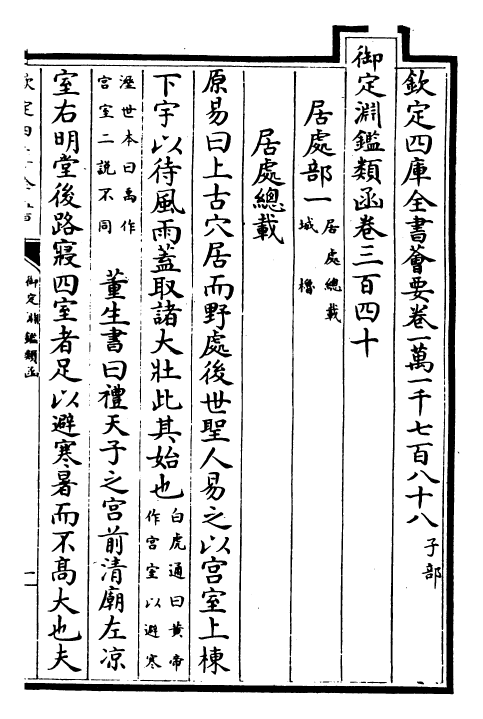 欽定四庫全書薈要卷一萬一千七百八十八 子部
御定淵鑑類函卷三百四十
居處部一 居處總載
城 櫓
居處總載
原易曰上古穴居而野處後世聖人易之以宮室上棟
下宇以待風雨蓋取諸大壯此其始也 白虎通曰黄帝
作宮室以避寒
溼世本曰禹作
宮室二說不同 董生書曰禮天子之宮前清廟左凉
室右明堂後路寢四室者足以避寒暑而不髙大也夫
欽定四庫全書
御定淵鑑類函
一